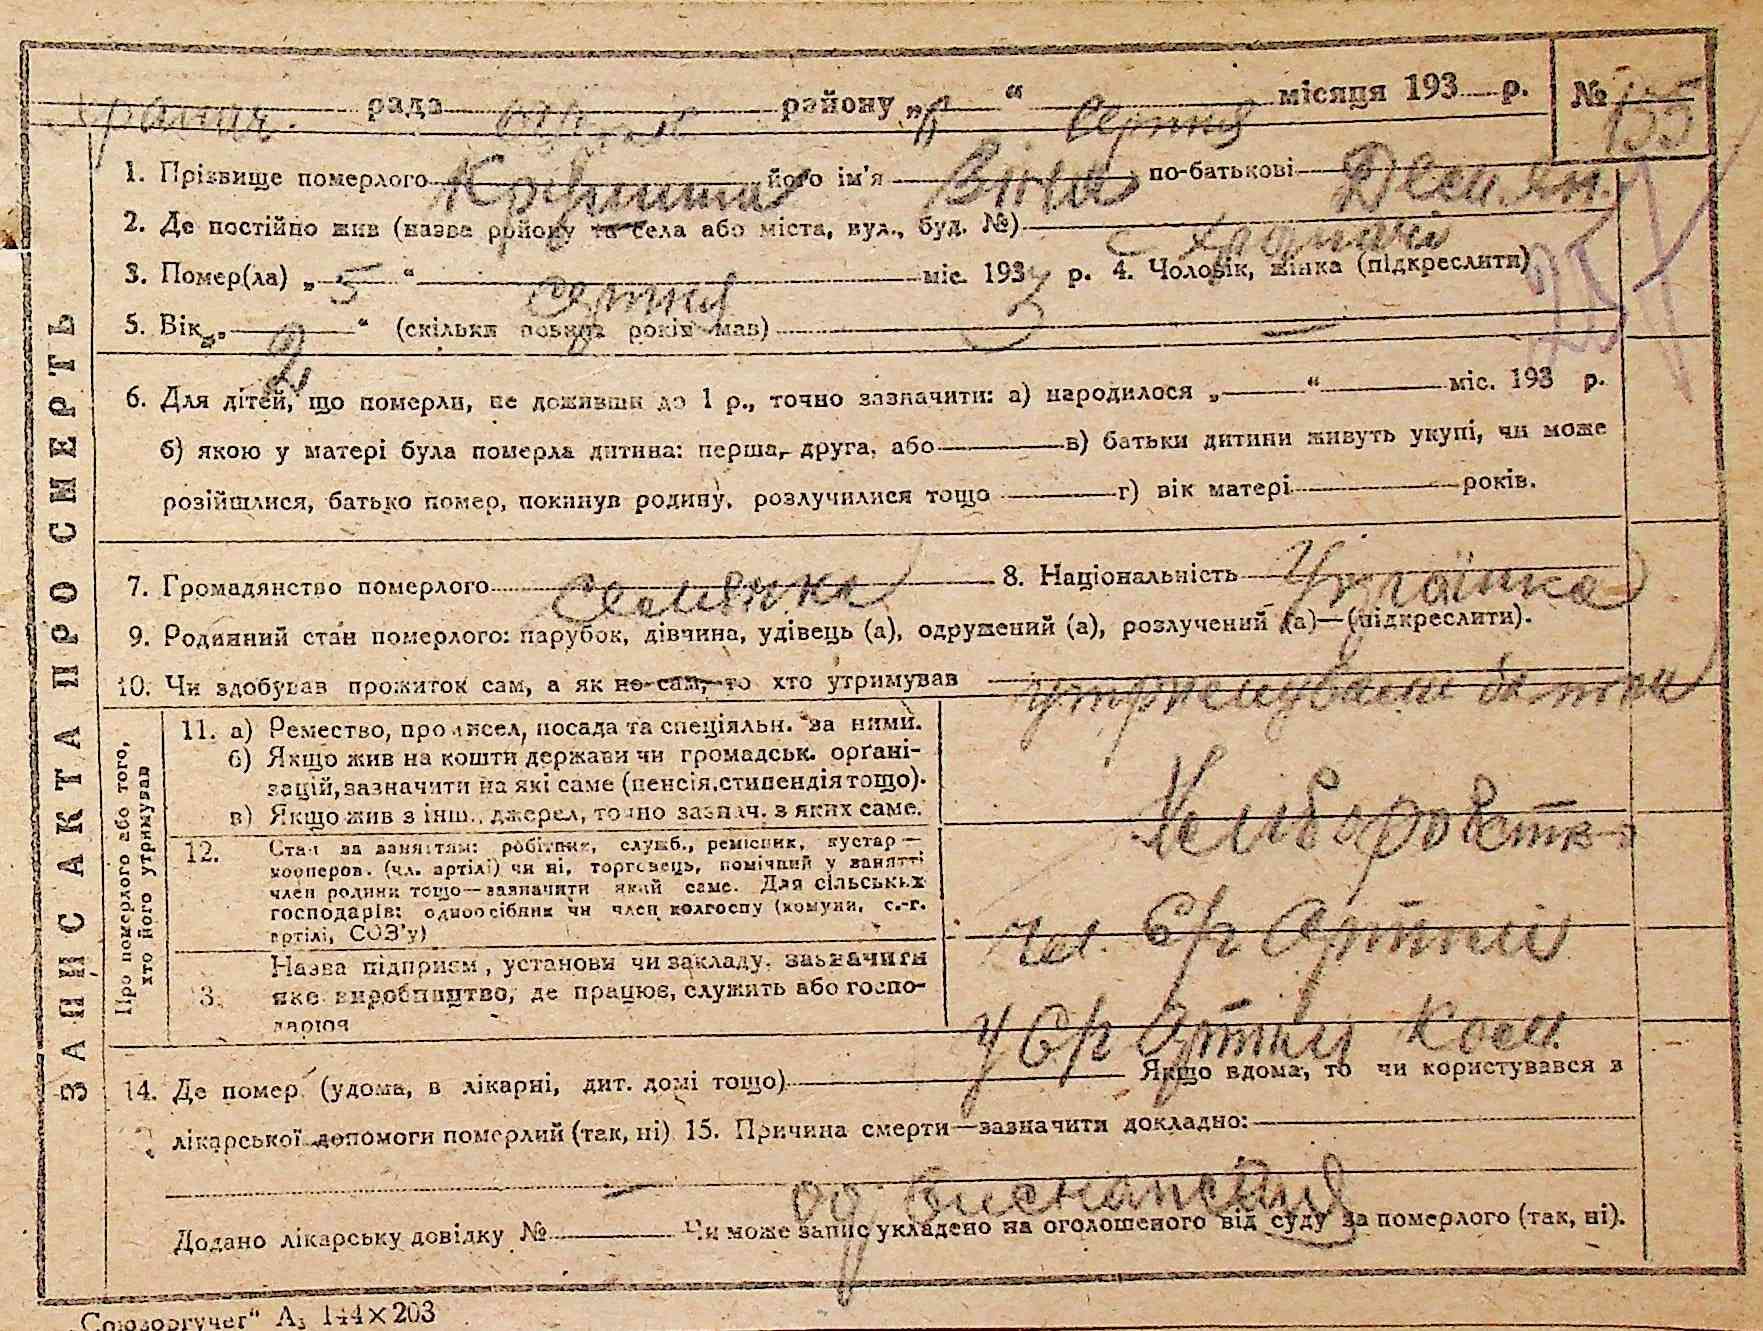 рада района „ “ Серпня місяця 193 р. № 135
1. Прізвище померлого його ім'я Віта по-батькові Дем'ян.
2. Де постійно жив (назва ройону та села або міста, вул., буд. №) с Храпачі
3. Помер(ла) „5“ серпня міс. 193 3 р. 4. Чоловік, жінка (підкреслити)
5. Вік „2“ (скільки повних років мав) —
6. Для дітей, що померли, не доживши до 1 р., точно зазначити: а) народилося „ “ міс. 193 р.
б) якою у матері була померла дитина: перша, друга, або в) батьки дитини живуть укупі, чи може
розійшлися, батько помер, покинув родину, розлучилися тощо г) вік матері років.
7. Громадянство померлого Селянка 8. Національність Українка
9. Родинний стан померлого: парубок, дівчина, удівець (а), одружений (а), розлучений (а)—(підкреслити).
10. Чи здобував прожиток сам, а як не сам, то хто утримував утримували батьки
ЗАПИС АКТА ПРО СМЕРТЬ
Про померлого або того, хто його утримував
11. а) Ремество, промисел, посада та спеціяльн. за ними.
б) Якщо жив на кошти держави чи громадськ. орґані-
зацій, зазначити на які саме (пенсія, стипендія тощо).
в) Якщо жив з інш. джерел, точно зазнач. з яких саме.
Хліборобство
12. Стан за заняттям: робітник, служб., ремісник, кустар —
кооперов. (чл. артілі) чи ні, торговець, помічний у занятті
член родини тощо—зазначити який саме. Для сільських
господарів: одноосібник чи член колгоспу (комуни, с.-г.
артілі, СОЗ'у)
чл. С/г Артилі
13. Назва підприєм., установи чи закладу, зазначити
яке виробництво, де працює, служить або госпо-
дарює
у С/г Артілі
14. Де помер (удома, в лікарні, дит. домі тощо) Якщо вдома, то чи користувався з
лікарської допомоги померлий (так, ні) 15. Причина смерти—зазначити докладно:
— од виснаження
Додано лікарську довідку № Чи може запис укладено на оголошеного від суду за померлого (так, ні).
„Союзоргучет“ А₅ 144×203